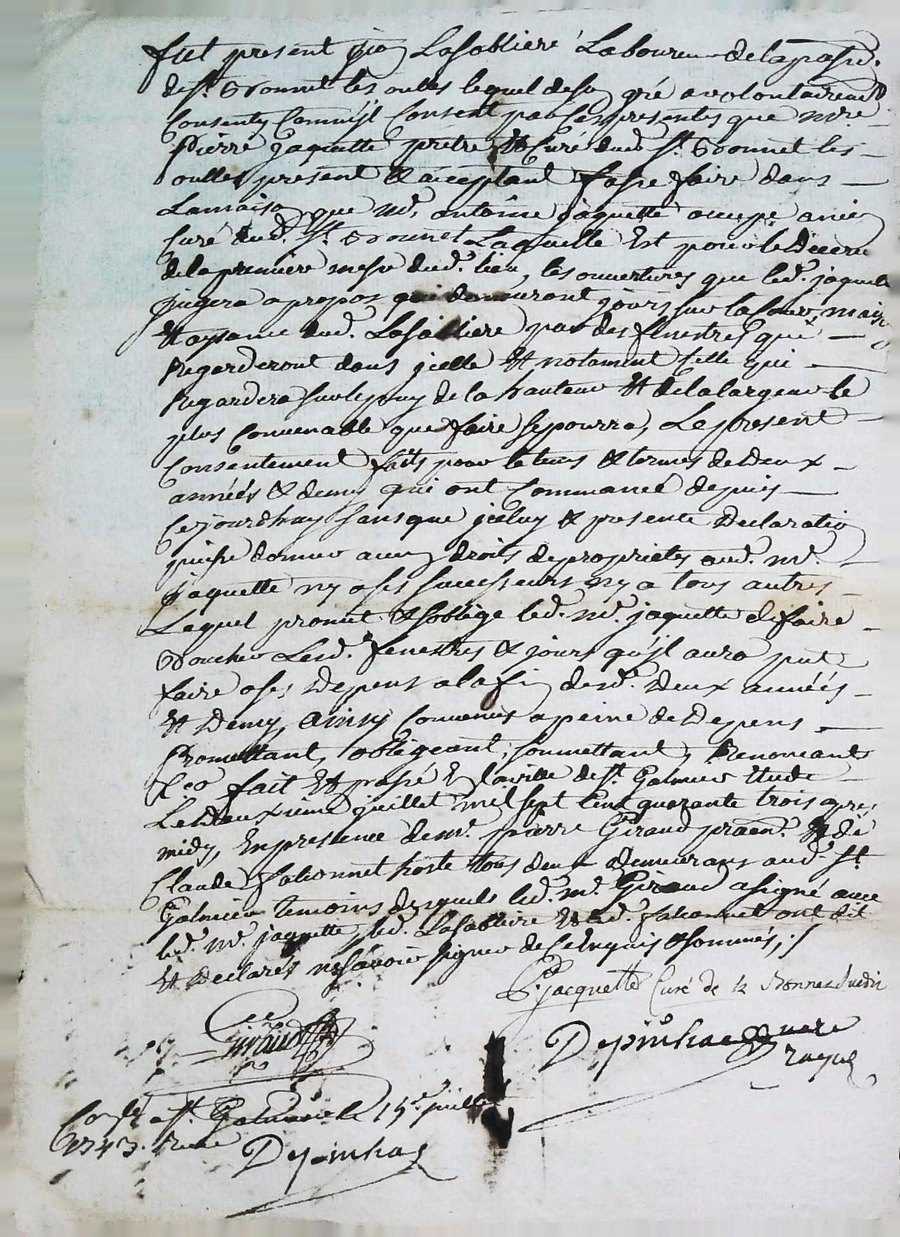 fut present jean Lasabliere Laboureur de la parre.
de st. Bonnet les oulles lequel de son gré a volontairemt
Consenty Comm'jl Consent par Ces presentes que mre
Pierre jaquette pretre Et Curé dud. st. Bonnet les
oulles present & acceptant fasse faire dans
La maison que mr. antoine jaquette occupe ancien
Curé dud. st. Bonnet Laquelle Est pour le
de la premiere messe dud. lieu, les ouvertures que led. jaquette
jugera a propos qui donneront jours sur la Cour, mais
Et aysance dud. Lasabliere par des fenestres que
Regarderont dans jcelle Et notament Celle qui
Regardera sur le puy de la hauteur Et de la largeur le
plus Convenable que faire se pourra, Le present
Consentement faits pour le tems & termes de deux
années & demy qui ont Commancé depuis
Cejourdhuy sans que jceluy & presente declaration
puisse donner aucun droits de proprietés aud. mr.
jaquette ny a ses successeurs ny a tous autres
Lequel promet & s'oblige led. mr. jaquette de faire
Boucher Lesd. fenestres & jours qu'jl aura fait
faire a ses depens a la fin desd. deux années
Et Demy, ainsy Convenus a peine de Depens
Promettant, obligeant, soumettant, Renoncant
fait Et passé En la ville de st. Galmier Etude
Le deuxieme juillet mil sept Cent quarante trois apres
midy, En presence de mr. pierre Giraud Et de
Claude fahonnet hoste tous deux demeurans aud. st.
Galmier temoins desquels led. mr. Giraud a signé avec
led. mr. jaquette, led. Lasabliere Et led. fahonnet ont dit
Et declarés ne savoir signer de Ce Enquis & sommés, ./
P. Jacquette Curé de st Bonnet
Giraud
Depinhac
Conlé a st. Galmier le 15e juillet
1743. Recu
Depinhac